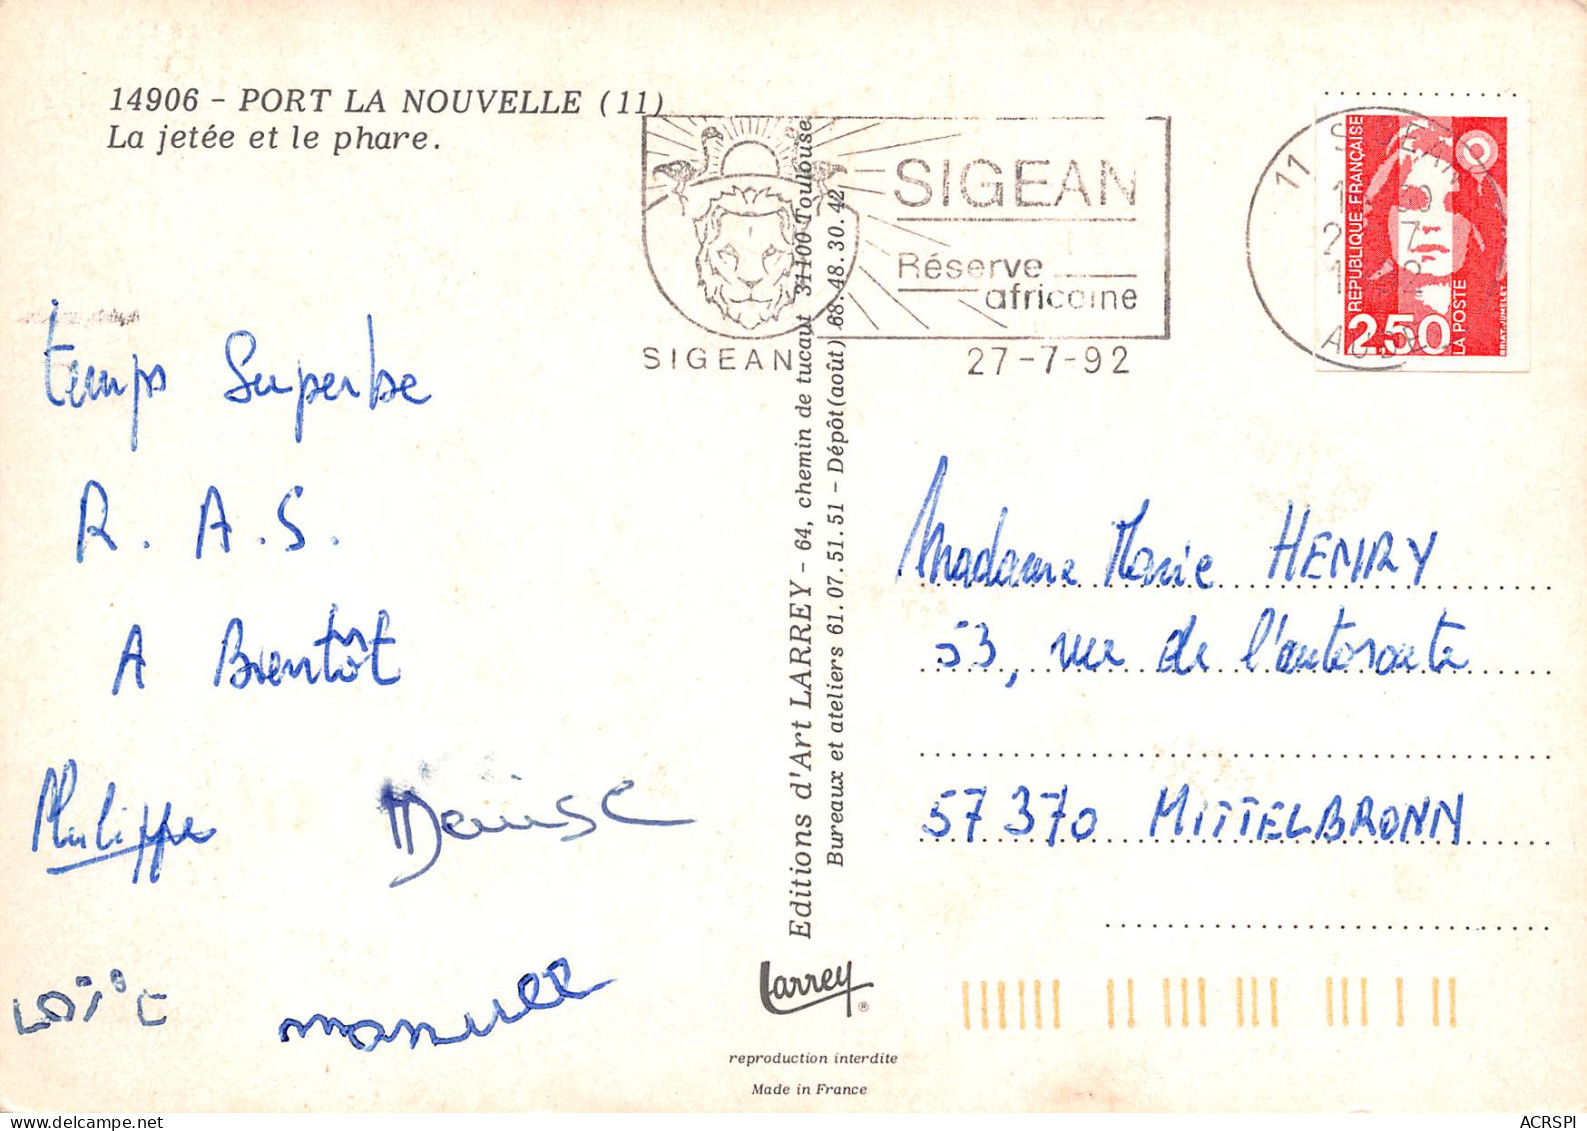 14906 - PORT LA NOUVELLE (11)
La jetée et le phare.
SIGEAN
Réserve
africaine
SIGEAN
27-7-92
11 SIGEAN
AUDE
REPUBLIQUE FRANÇAISE
2,50
LA POSTE
BRIAT-JUMELET
temps Superbe
R. A. S.
A Bientôt
Philippe Denise
Loïc manuel
Editions d'Art LARREY - 64, chemin de tucaut 31100 Toulouse
Bureaux et ateliers 61.07.51.51 - Dépôt (août) 68.48.30.42
Madame Marie HENRY
53, rue de l'autoroute
57370 MITTELBRONN
Larrey ®
reproduction interdite
Made in France
ACRSPI